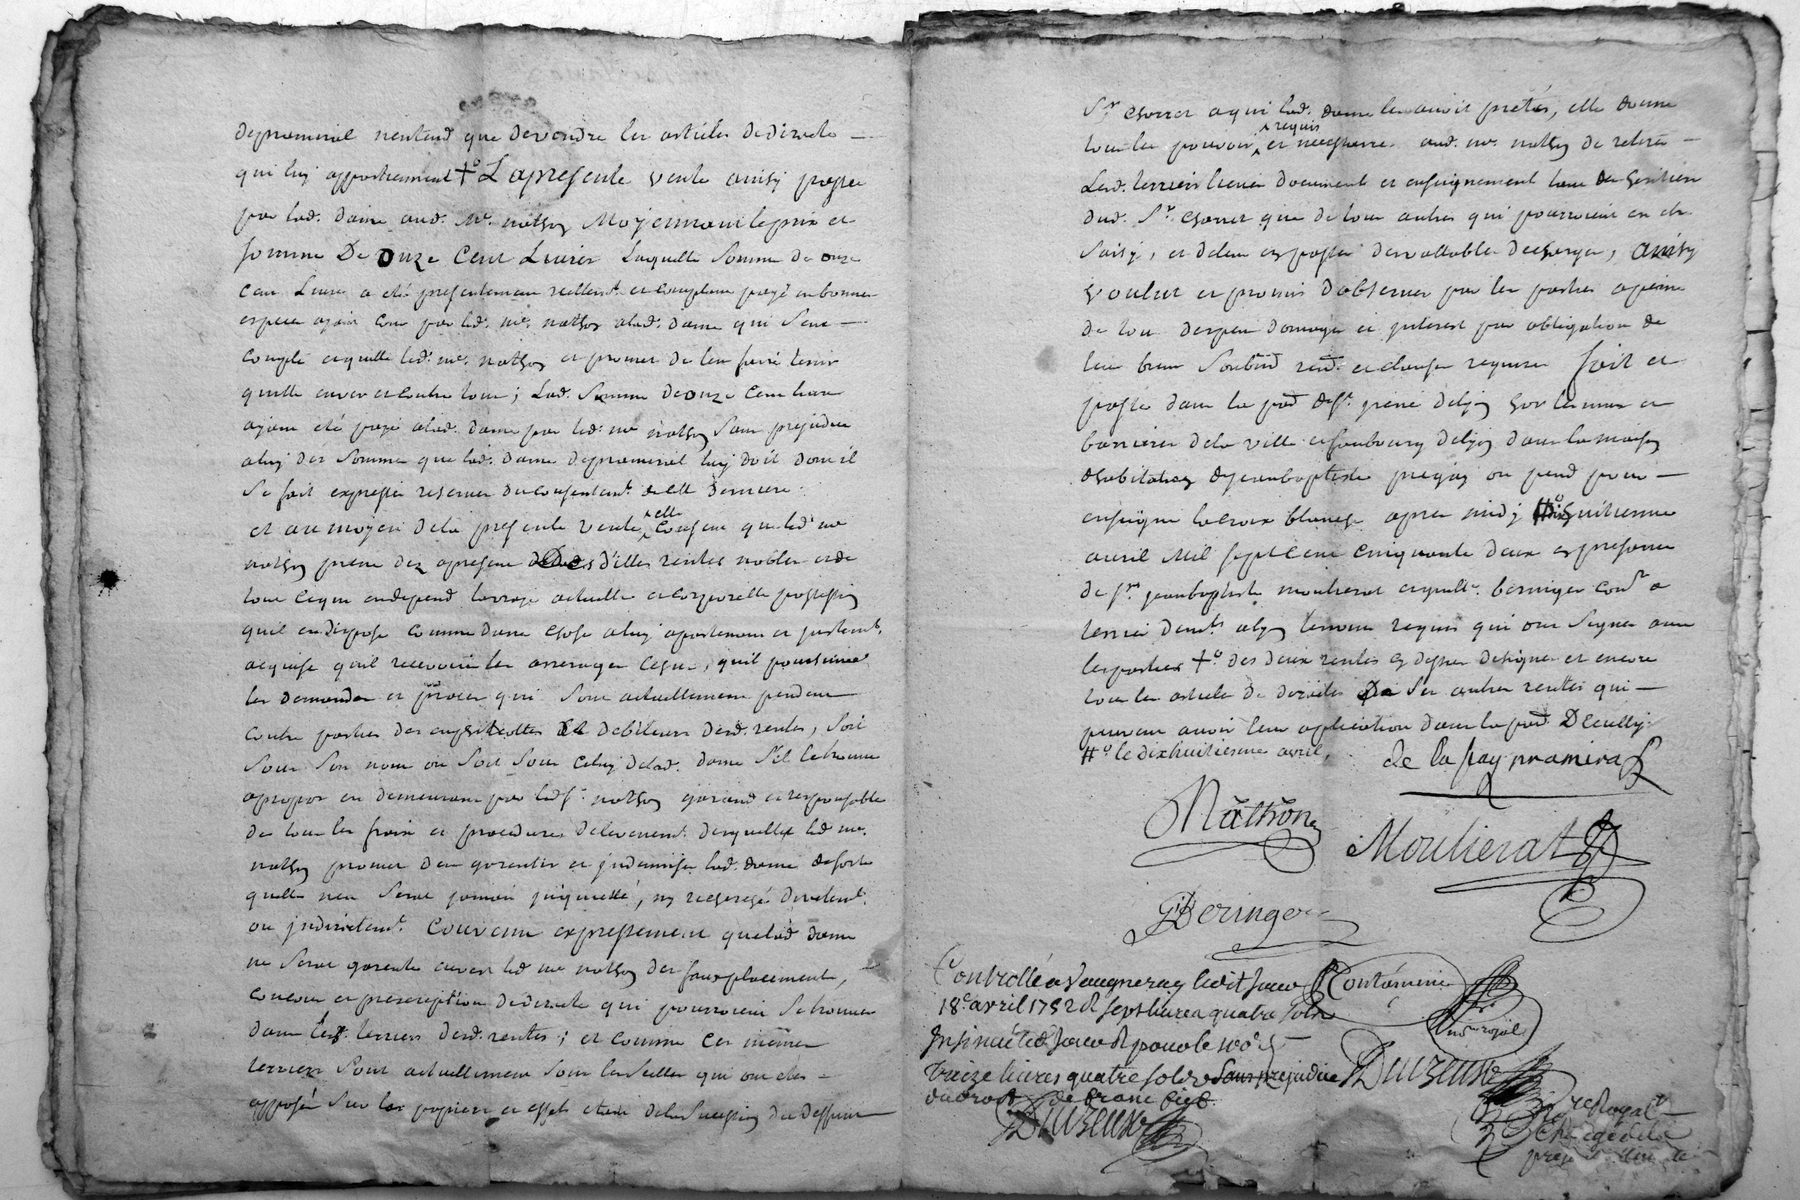 depramiral n'entend que devendre les articles dedirecte
qui luy appartiennent +o La presente vente ainsy passee
par lad. dame aud. Me. mathon Moyennant leprix et
somme De Onze Cent Livres Laquelle somme de onze
Cent Livres a été presentement reellemt. et comptant payé en bonnes
especes ayant cour par led. me. mathon alad. dame qui sen
compte et quitte led. me. mathon et promet de len faire tenir
quitte envers et contre tous ; Lad. somme deonze Cent livres
ayant été payé alad. dame par led. me mathon sans prejudice
aluy des sommes que lad. dame depramiral luy doit dont il
se fait expresse reserve du consentemt. de cette derniere.
et au moyen dela presente vente elle consent que led. me
mathon prenne dez apresent desdites rentes nobles et de
tout cequi endepend la vraye actuelle et corporelle possession
quil en dispose comme dune chose aluy apartenant et justemt.
acquise quil recouvre les arrerages Cens, quil poursuive
les demandes et proces qui sont actuellement pendant
contre partie des emphiteottes et debiteurs desd. rentes, soit
sous son nom ou soit sous Celuy delad. dame s'il letrouve
apropos en demeurant par led. sr. mathon garand et responsable
de tous les fraix et procedures delevenemt. desquelles led me.
mathon promet den garentir et jndemniser lad. dame desorte
quelle nen serat jamais jnquietté, ny recherché directemt.
ou jndirectemt. Convenu expressement quelad dame
ne serat garente envers led me mathon des fauxplacement,
concours et prescription dedirecte qui pourroient se trouver
dans les terriers desd. rentes ; et comme Ces mêmes
terriers sont actuellement sous les scelles qui ont etes
apposés sur les papiers et effets etant dela succession du deffunt
Sr. chorret aqui lad. dame les avoit pretés, elle donne
tous les pouvoirs requis et necessaire aud. me. mathon de retirer
Lesd. terriers lieves documents et enseignement tant des heritiers
dud. Sr. chorret que de tous autres qui pourroient en etre
saisy, et deleur en passer dcs vallables decharge, ainsy
voulut et promis d'observer par les parties apeine
de tous depens domages et jnterest par obligation de
leur biens soubmn. rend. et clauses requises fait et
passé dans la pnd de st. jrené delyon hors les murs et
barrieres dela ville et faubourg delyon dans la maison
dhabitation de jeanbaptiste ou pend pour
enseigne lacroix blanche apres midy #o huitieme
avril Mil sept Cent Cinquante deux en presence
de sr. jeanbaptiste moulierat et guille. beringer
temoins requis qui ont signer avec
les parties +o des deux rentes cy dessus designer et encore
tous les articles de directes De ses autres rentes qui
peuvent avoir leur application dans la pnd. Decully.
#o le dixhuitieme avril,
de la fay pramiral
Mathon
Moulierat
Beringer
Controllé a Vaugneray ledit jour
18e. avril 1752 R sept livres quatre sols
Insinué led. jour R pour le 100e.
treize livres quatre sols sans prejudice
du droit de franc fief
Duzeune
nore royal